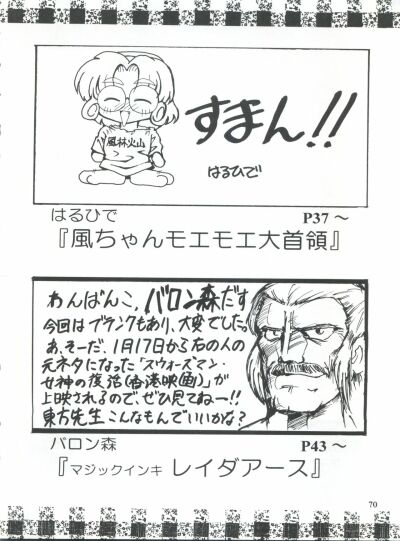 すまん!!
風林火山
はるひで
はるひで P37～
『風ちゃんモエモエ大首領』
わんばんこ,バロン森だす
今回はブランクもあり、大変でした。
あ、そーだ、1月17日から右の人の
元ネタになった「スウォーズマン・
女神の復活(香港映画)」が
上映されるのでぜひ見てねー!!
東方先生こんなもんでいいかな?
バロン森 P43～
『マジックインキ レイダアース』
70